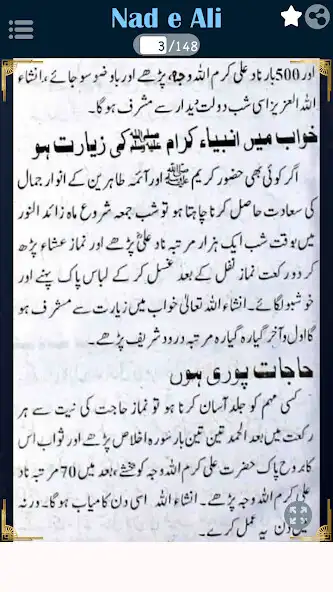 Nad e Ali
3/148
اور 500 بار ناد علی کرم اللہ وجہ، پڑھے اور باوضو سو جائے، انشاء
اللہ العزیز اسی شب دولت دیدار سے مشرف ہوگا۔
خواب میں انبیاء کرام ﷺ کی زیارت ہو
اگر کوئی بھی حضور کریم ﷺ اور آئمہ طاہرین کے انوار جمال
کی سعادت حاصل کرنا چاہتا ہو تو شب جمعہ شروع ماہ زائد النور
میں بوقت شب ایک ہزار مرتبہ ناد علیؓ پڑھے اور نماز عشاء پڑھ
کر دو رکعت نماز نفل کے بعد غسل کر کے لباس پاک پہنے اور
خوشبو لگائے۔ انشاء اللہ تعالیٰ خواب میں زیارت سے مشرف ہو
گا اول و آخر گیارہ گیارہ مرتبہ درود شریف پڑھے۔
حاجات پوری ہوں
کسی مہم کو جلد آسان کرنا ہو تو نماز حاجت کی نیت سے ہر
رکعت میں بعد الحمد تین تین بار سورہ اخلاص پڑھے اور ثواب اس
کا بروح پاک حضرت علی کرم اللہ وجہ کو بخشے، بعد میں 70 مرتبہ ناد
علی کرم اللہ وجہ پڑھے۔ انشاء اللہ اسی دن کامیاب ہوگا۔ ورنہ
دن یہ عمل کرے۔